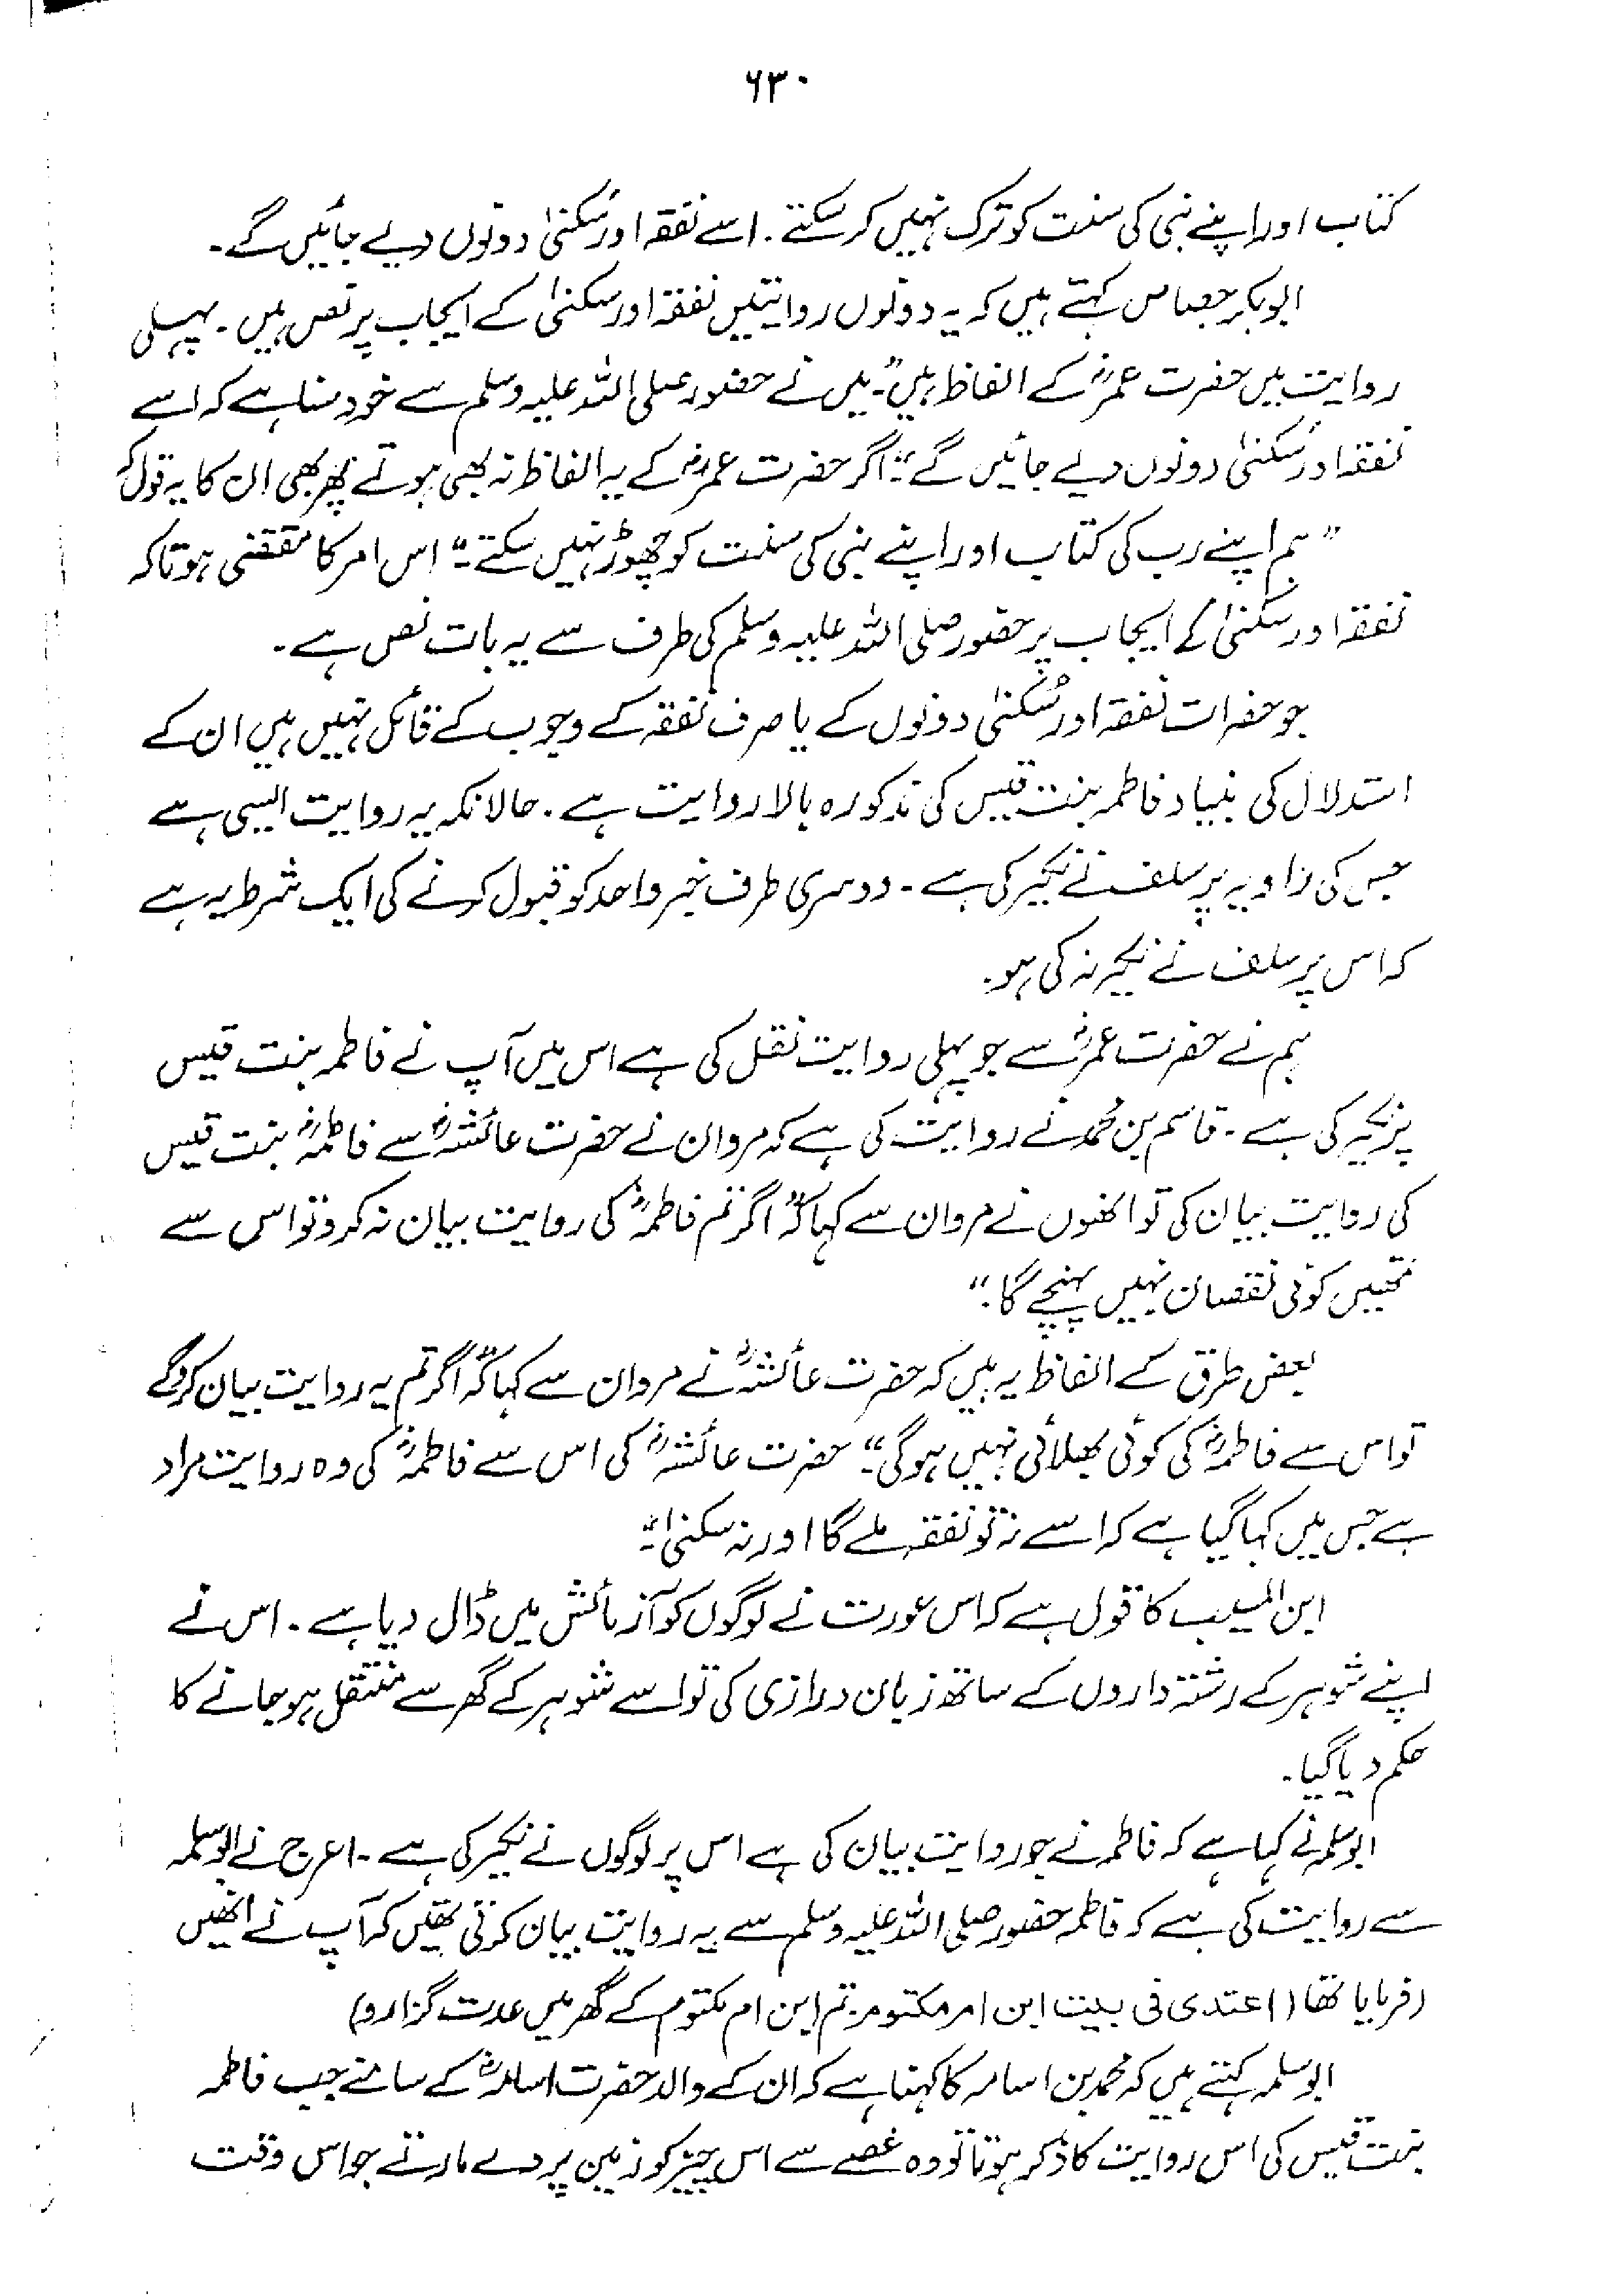 ۶۳۰
کتاب اور اپنے نبی کی سنت کو ترک نہیں کر سکتے۔ اسے نفقہ اور سُکنیٰ دونوں دیے جائیں گے۔
ابوبکر جصاص کہتے ہیں کہ یہ دونوں روایتیں نفقہ اور سکنیٰ کے ایجاب پر نص ہیں۔ پہلی
روایت میں حضرت عمرؓ کے الفاظ ہیں"۔ میں نے حضور صلی اللہ علیہ وسلم سے خود سنا ہے کہ اسے
نفقہ اور سُکنیٰ دونوں دیے جائیں گے"۔ اگر حضرت عمرؓ کے یہ الفاظ نہ بھی ہوتے پھر بھی ان کا یہ قول کہ
"ہم اپنے رب کی کتاب اور اپنے نبی کی سنت کو چھوڑ نہیں سکتے"۔ اس امر کا مقتضی ہوتا کہ
نفقہ اور سکنیٰ کے ایجاب پر حضور صلی اللہ علیہ وسلم کی طرف سے یہ بات نص ہے۔
جو حضرات نفقہ اور سُکنیٰ دونوں کے یا صرف نفقہ کے وجوب کے قائل نہیں ہیں ان کے
استدلال کی بنیاد فاطمہ بنت قیس کی مذکورہ بالا روایت ہے۔ حالانکہ یہ روایت ایسی ہے
جس کی راویہ پر سلف نے نکیر کی ہے۔ دوسری طرف خبر واحد کو قبول کرنے کی ایک شرط یہ ہے
کہ اس پر سلف نے نکیر نہ کی ہو۔
ہم نے حضرت عمرؓ سے جو پہلی روایت نقل کی ہے اس میں آپ نے فاطمہ بنت قیس
پر نکیر کی ہے۔ قاسم بن محمد نے روایت کی ہے کہ مروان نے حضرت عائشہؓ سے فاطمہؓ بنت قیس
کی روایت بیان کی تو انھوں نے مروان سے کہا کہ" اگر تم فاطمہؓ کی روایت بیان نہ کرو تو اس سے
تمھیں کوئی نقصان نہیں پہنچے گا۔"
بعض طرق کے الفاظ یہ ہیں کہ حضرت عائشہؓ نے مروان سے کہا کہ" اگر تم یہ روایت بیان کرو گے
تو اس سے فاطمہؓ کی کوئی بھلائی نہیں ہوگی"۔ حضرت عائشہؓ کی اس سے فاطمہؓ کی وہ روایت مراد
ہے جس میں کہا گیا ہے کہ اسے نہ تو نفقہ ملے گا اور نہ سکنیٰ"۔
ابن المسیب کا قول ہے کہ اس عورت نے لوگوں کو آزمائش میں ڈال دیا ہے۔ اس نے
اپنے شوہر کے رشتہ داروں کے ساتھ زبان درازی کی تو اسے شوہر کے گھر سے منتقل ہو جانے کا
حکم دیا گیا۔
ابوسلمہ نے کہا ہے کہ فاطمہ نے جو روایت بیان کی ہے اس پر لوگوں نے نکیر کی ہے۔ اعرج نے ابوسلمہ
سے روایت کی ہے کہ فاطمہ حضور صلی اللہ علیہ وسلم سے یہ روایت بیان کرتی تھیں کہ آپ نے انھیں
(فرمایا تھا (اعتدی فی بیت ابن ام مکتوم۔ تم ابن ام مکتوم کے گھر میں عدت گزارو)
ابوسلمہ کہتے ہیں کہ محمد بن اسامہ کا کہنا ہے کہ ان کے والد حضرت اسامہؓ کے سامنے جب فاطمہ
بنت قیس کی اس روایت کا ذکر ہوتا تو وہ غصے سے اس چیز کو زمین پر دے مارتے جو اس وقت